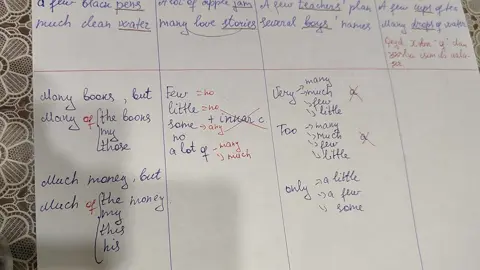 a few black pens
much clean water
A lot of apple jam
many love stories
A few teachers' plan
several boys' names
A few cups of tea
Many drops of water
Many books, but
Many of the books
my
those
Much money, but
Much of the money
my
this
his
Few = no
little = no
some → any
no
a lot of → many
→ much
Very → many
→ much
→ few
→ little
Too → many
→ much
→ few
→ little
only → a little
→ a few
→ some